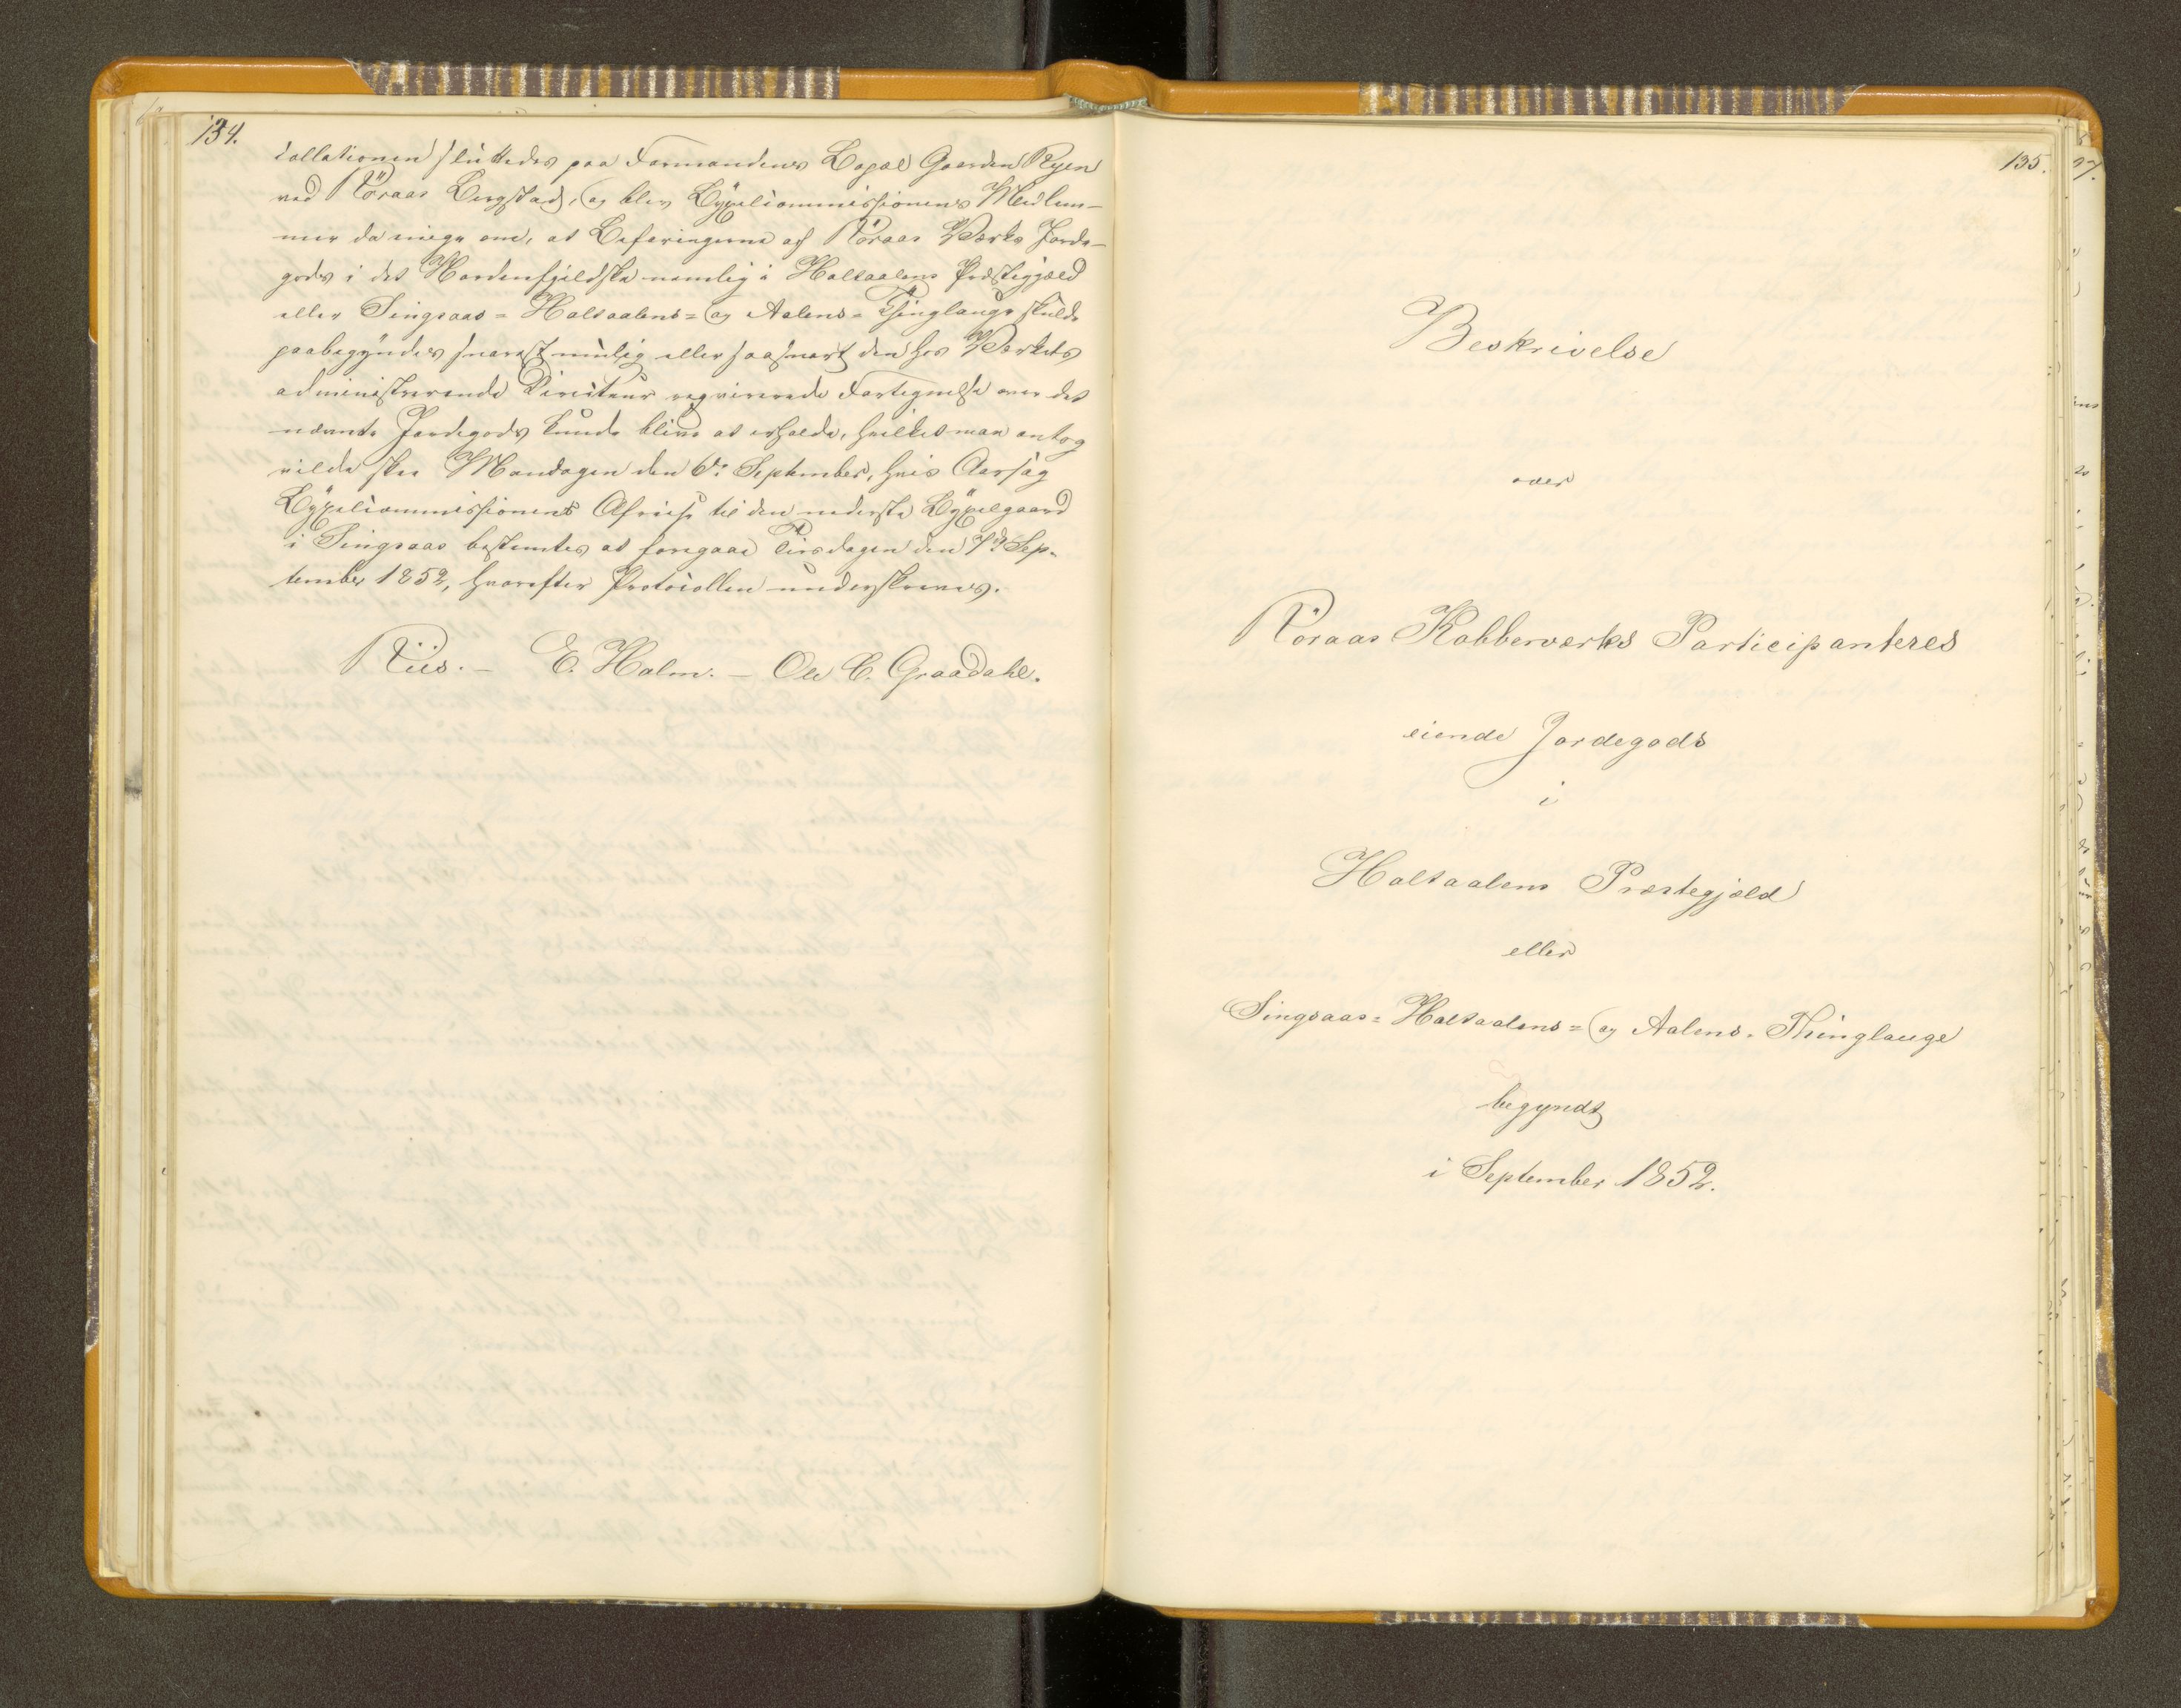 134.
collationen sluttedes paa Formandens Bopæl Gaarden Ryen
ved Röraas Bergstad, og blev Bÿxelcommissionens Medlem-
mer da enige om, at Befaringerne af Röraas Værks Jorde-
gods i det Nordenfjeldske nemlig i Holtaalens Præstegjæld
eller Singsaas= Holtaalens= og Aalens= Thinglauge skulde
paabegyndes snarest mulig eller saasnart den hos Værkets
administrerende Directeur reqvirerede Fortegnelse over det
nævnte Jordegods kunde blive at erholde, hvilket man antog
vilde skee Mandagen den 6de September, hvis Aarsag
Bÿxelcommissionens Afreise til den nederste Bÿxelgaard
i Singsaas bestemtes at foregaae Tirsdagen den 7de Sep-
tember 1852, hvorefter Protocollen underskreves.
Riis. – E. Holm. – Ole C. Graadahl.
135.
Beskrivelse
over
Röraas Kobberværks Participanteres
eiende Jordegods
i
Holtaalens Præstegjæld
eller
Singsaas= Holtaalens= og Aalens= Thinglauge
begyndt
i September 1852.